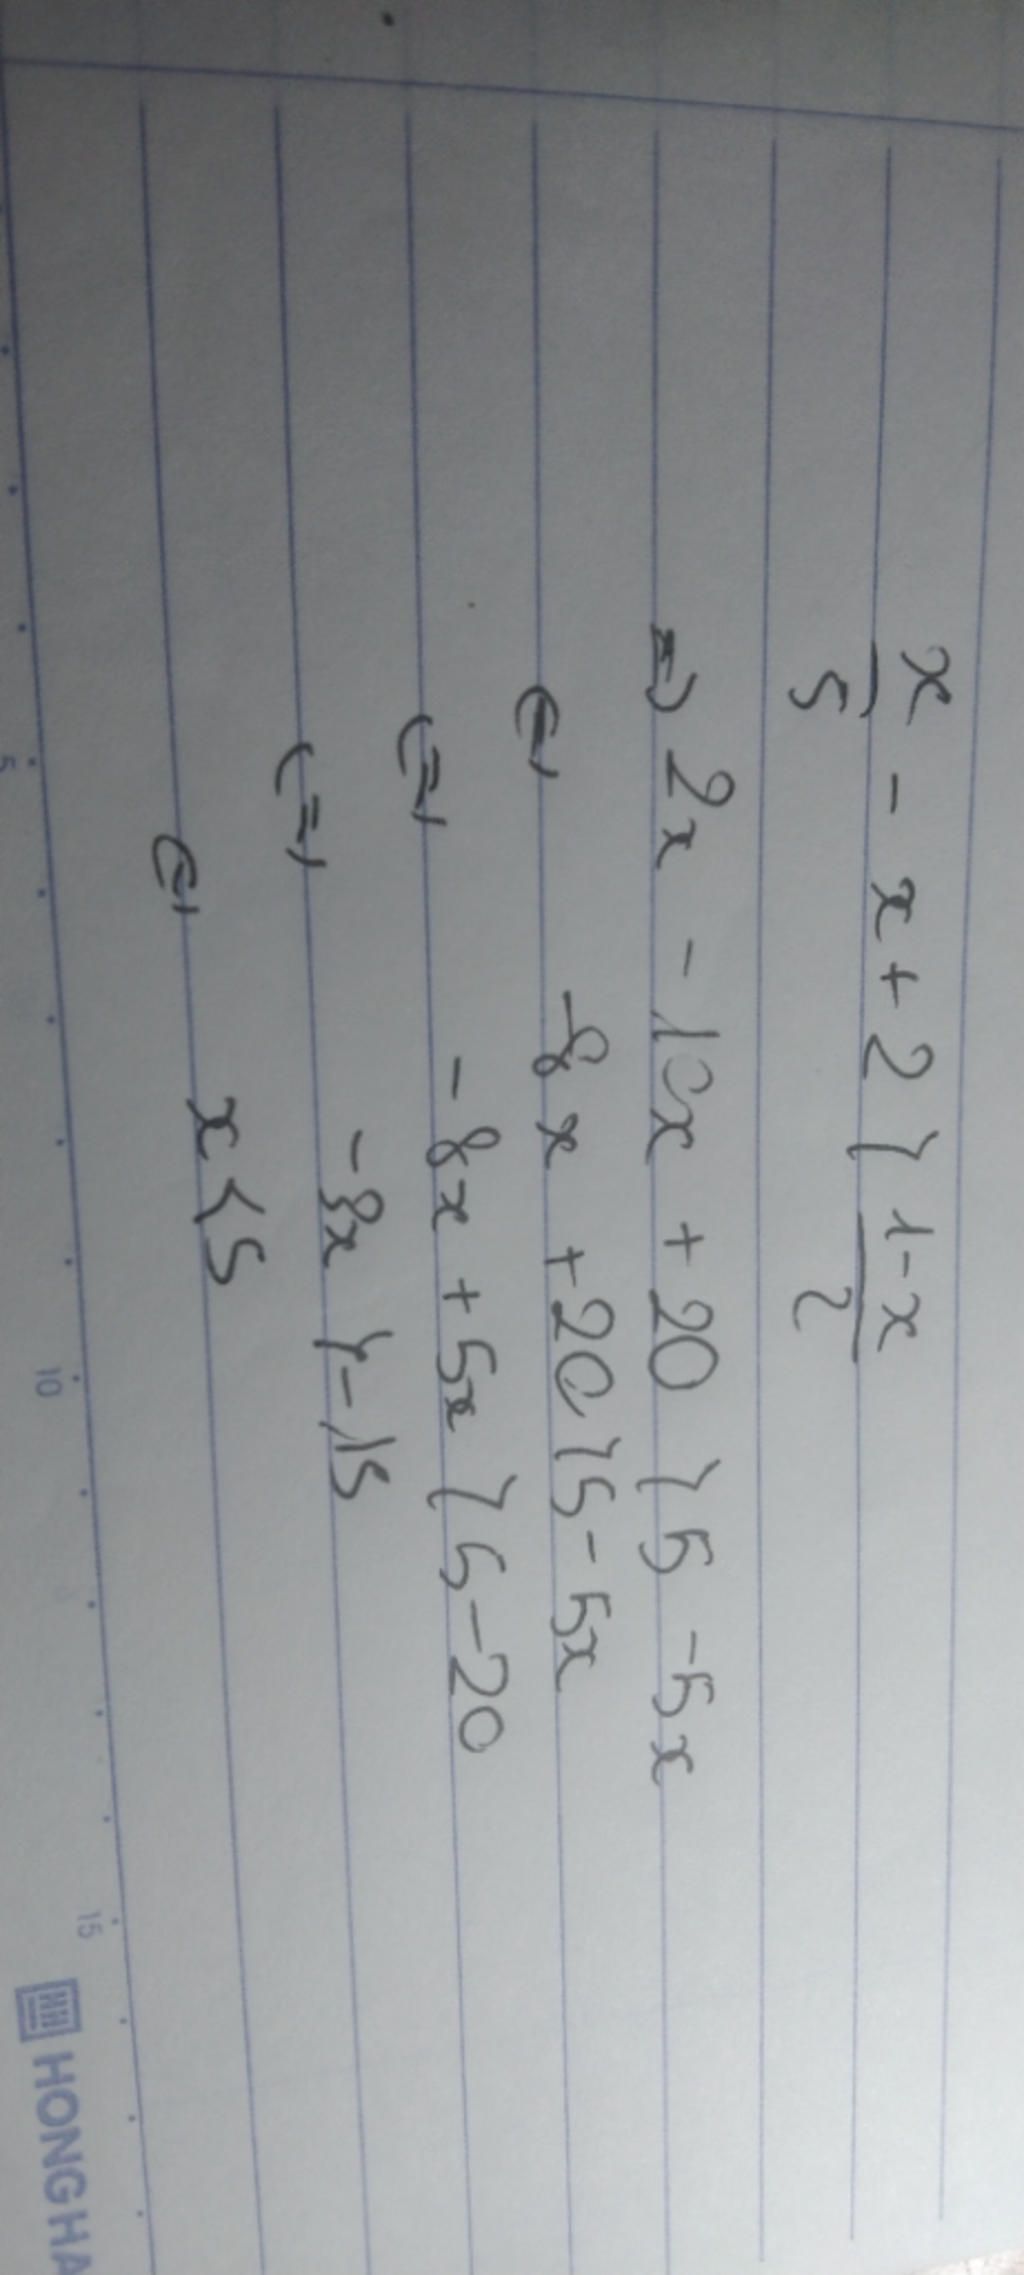 x/5 - x + 2 > (1-x)/2
=> 2x - 10x + 20 > 5 - 5x
<=> -8x + 20 > 5 - 5x
<=> -8x + 5x > 5 - 20
<=> -3x > -15
<=> x < 5
5 10 15
HONG HA